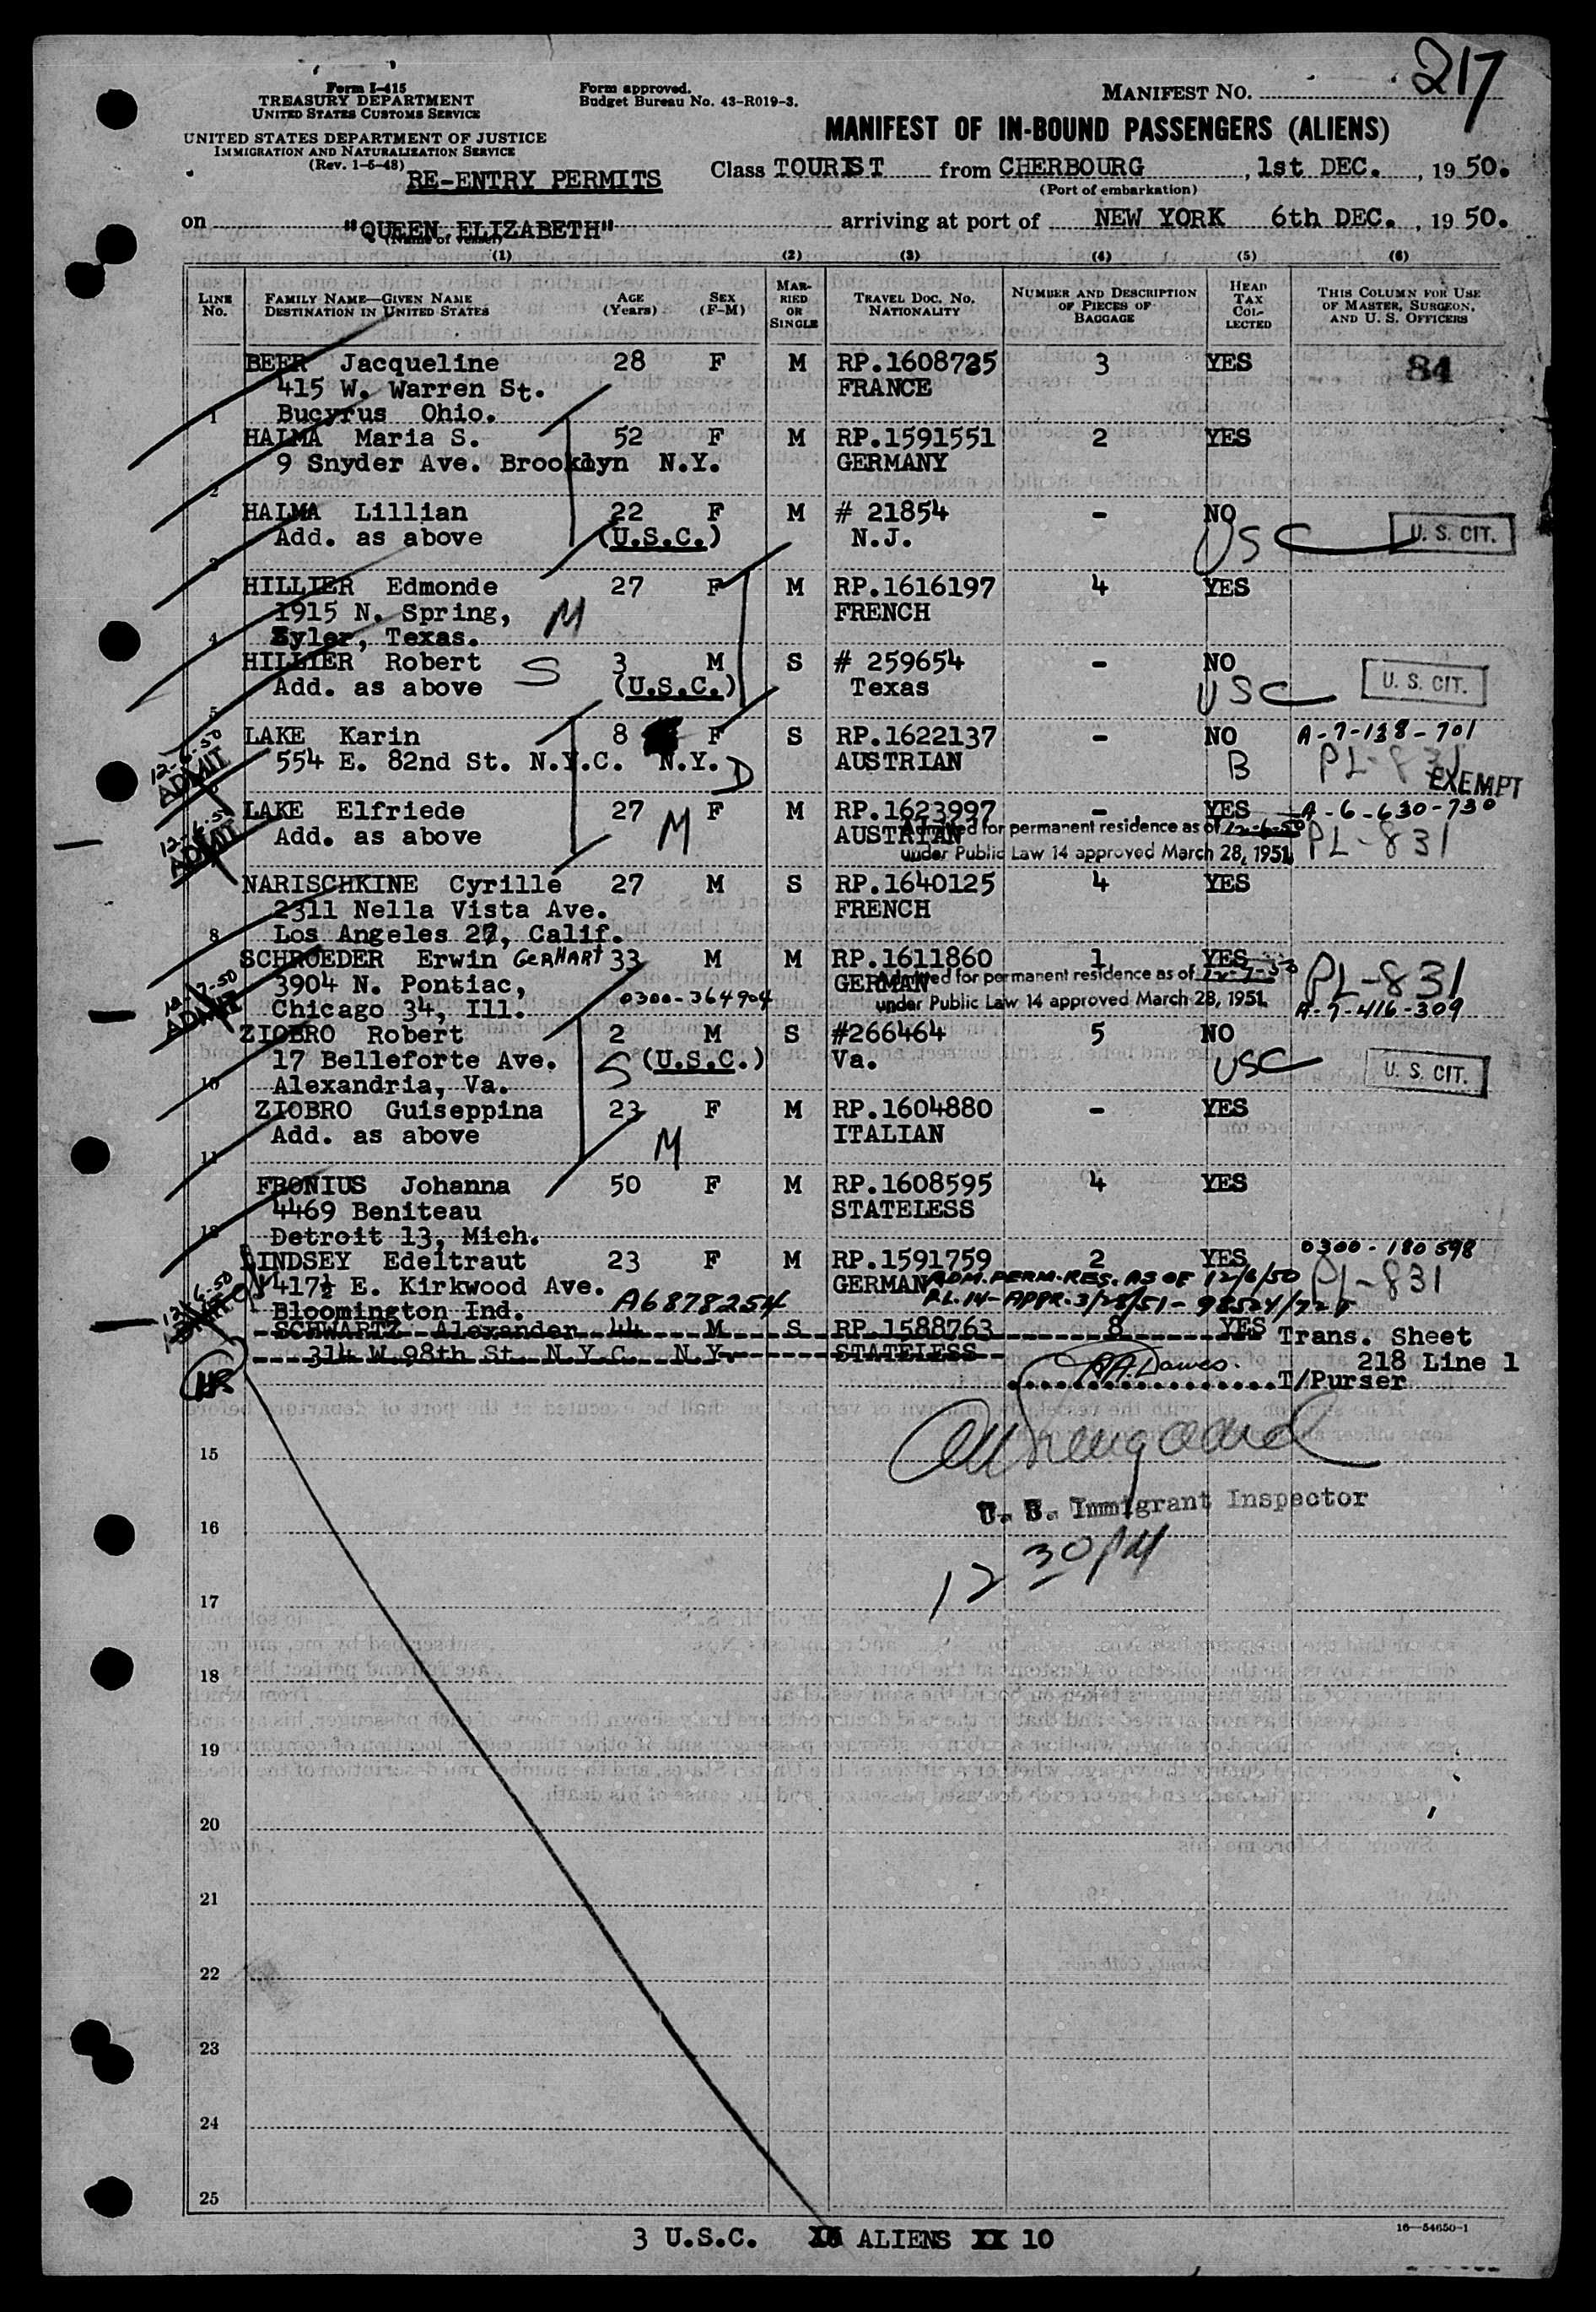 217
Form I-415
TREASURY DEPARTMENT
UNITED STATES CUSTOMS SERVICE
UNITED STATES DEPARTMENT OF JUSTICE
IMMIGRATION AND NATURALIZATION SERVICE
(Rev. 1-5-48)
RE-ENTRY PERMITS
Form approved.
Budget Bureau No. 43-R019-3.
MANIFEST NO.
MANIFEST OF IN-BOUND PASSENGERS (ALIENS)
Class TOURIST from CHERBOURG, 1st DEC., 19 50.
(Port of embarkation)
on "QUEEN ELIZABETH" arriving at port of NEW YORK 6th DEC., 19 50.
(Name of vessel)
(1) (2) (3) (4) (5) (6)
LINE NO. FAMILY NAME—GIVEN NAME DESTINATION IN UNITED STATES AGE (Years) SEX (F-M) MARRIED OR SINGLE TRAVEL DOC. NO. NATIONALITY NUMBER AND DESCRIPTION OF PIECES OF BAGGAGE HEAD TAX COLLECTED THIS COLUMN FOR USE OF MASTER, SURGEON, AND U. S. OFFICERS
BEER Jacqueline 28 F M RP.1608735 3 YES 84
415 W. Warren St. FRANCE
1 Bucyrus Ohio.
HAIMA Maria S. 52 F M RP.1591551 2 YES
9 Snyder Ave. Brooklyn N.Y. GERMANY
2
HAIMA Lillian 22 F M # 21854 - NO
Add. as above (U.S.C.) N.J. USC U. S. CIT.
3
HILLIER Edmonde 27 F M RP.1616197 4 YES
1915 N. Spring, M FRENCH
4 Tyler, Texas.
HILLIER Robert S 3 M S # 259654 - NO
Add. as above (U.S.C.) Texas USC U. S. CIT.
5
LAKE Karin 8 F S RP.1622137 - NO A-7-138-701
12-6-50 ADMIT 554 E. 82nd St. N.Y.C. N.Y. D AUSTRIAN B PL-831 EXEMPT
LAKE Elfriede 27 F M RP.1623997 - YES A-6-630-730
12-6-50 ADMIT Add. as above M AUSTRIAN PL-831
Admitted for permanent residence as of 12-6-50
under Public Law 14 approved March 28, 1951
NARISCHKINE Cyrille 27 M S RP.1640125 4 YES
2311 Nella Vista Ave. FRENCH
8 Los Angeles 27, Calif.
SCHROEDER Erwin GERHART 33 M M RP.1611860 1 YES PL-831
12-7-50 ADMIT 3904 N. Pontiac, 0300-364904 GERMAN A-7-416-309
Chicago 34, Ill.
Admitted for permanent residence as of
under Public Law 14 approved March 28, 1951
ZIOBRO Robert 2 M S #266464 5 NO
17 Belleforte Ave. S (U.S.C.) Va. USC U. S. CIT.
10 Alexandria, Va.
ZIOBRO Guiseppina 23 F M RP.1604880 - YES
Add. as above M ITALIAN
11
FRONIUS Johanna 50 F M RP.1608595 4 YES
4469 Beniteau STATELESS
12 Detroit 13, Mich.
LINDSEY Edeltraut 23 F M RP.1591759 2 YES 0300-180598
417½ E. Kirkwood Ave. GERMAN PL-831
Bloomington Ind. A6878254
ADM. PERM. RES. AS OF 12/6/50
P.L. 14-APPR. 3/28/51-
SCHWARTZ Alexander 44 M S RP.1588763 8 YES Trans. Sheet
314 W.98th St. N.Y.C. N.Y. STATELESS 218 Line 1
T/Purser
U. S. Immigrant Inspector
12 30 PM
15
16
17
18
19
20
21
22
23
24
25
3 U.S.C. ALIENS 10
16—54650-1